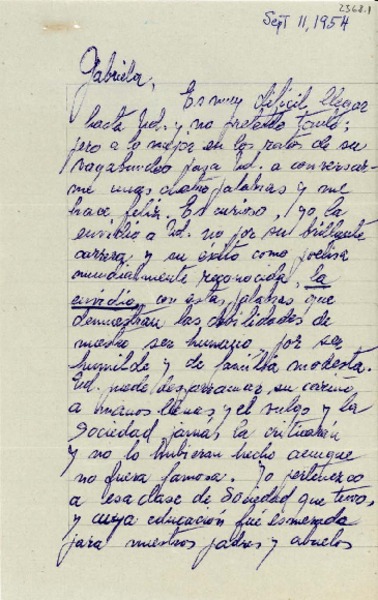 2368.1
Sept 11, 1954
Gabriela,
Es muy difícil llegar
hasta Ud. y no pretendo tanto;
pero a lo mejor en los ratos de su
vagabundeo pasa Ud. a conversar-
me unas cuatro palabras y me
hace feliz. Es curioso, yo la
envidio a Ud. no por su brillante
carrera y su éxito como poetisa
mundialmente reconocida, la
envidio, con estas palabras que
demuestran las debilidades de
nuestro ser humano, por ser
humilde y de familia modesta.
Ud. puede desparramar su cariño
a manos llenas y el vulgo y la
Sociedad jamás la criticarán
y no lo hubieran hecho aunque
no fuera famosa. Yo pertenezco
a esa clase de Sociedad que tuvo,
y cuya educación fué esmerada
para nuestros padres y abuelos